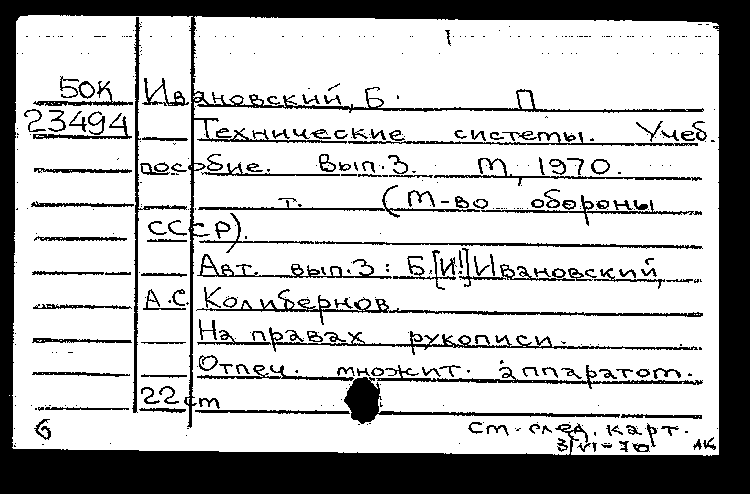 50К Ивановский, Б. П
23494 Технические системы. Учеб.
пособие. Вып. 3. М, 1970.
т. (М-во обороны
СССР).
Авт. вып. 3: Б.[И!] Ивановский,
А.С. Колибернов
На правах рукописи.
Отпеч. множит. аппаратом.
22 см
6 см. след. карт.
3/VI-70 АК